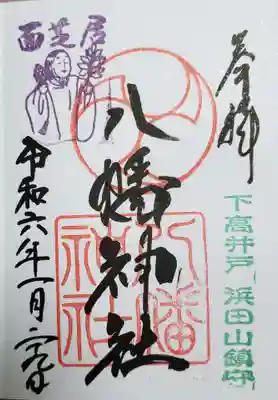 奉拝
下高井戸 浜田山鎮守
八幡神社
八幡神社
面芝居
令和六年一月二十日